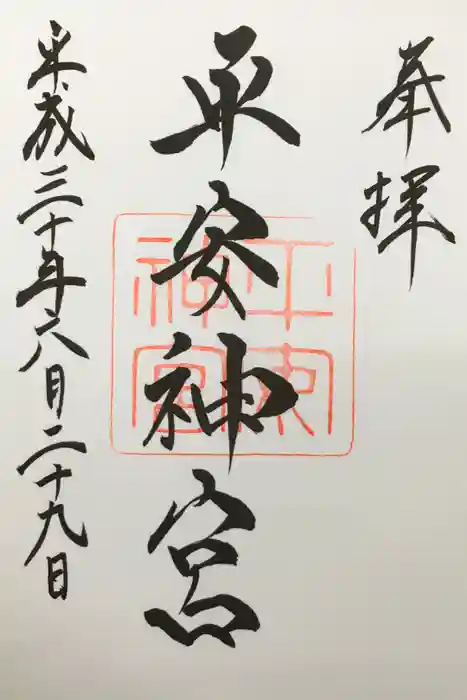 奉拝
平安神宮
平成三十年六月二十九日